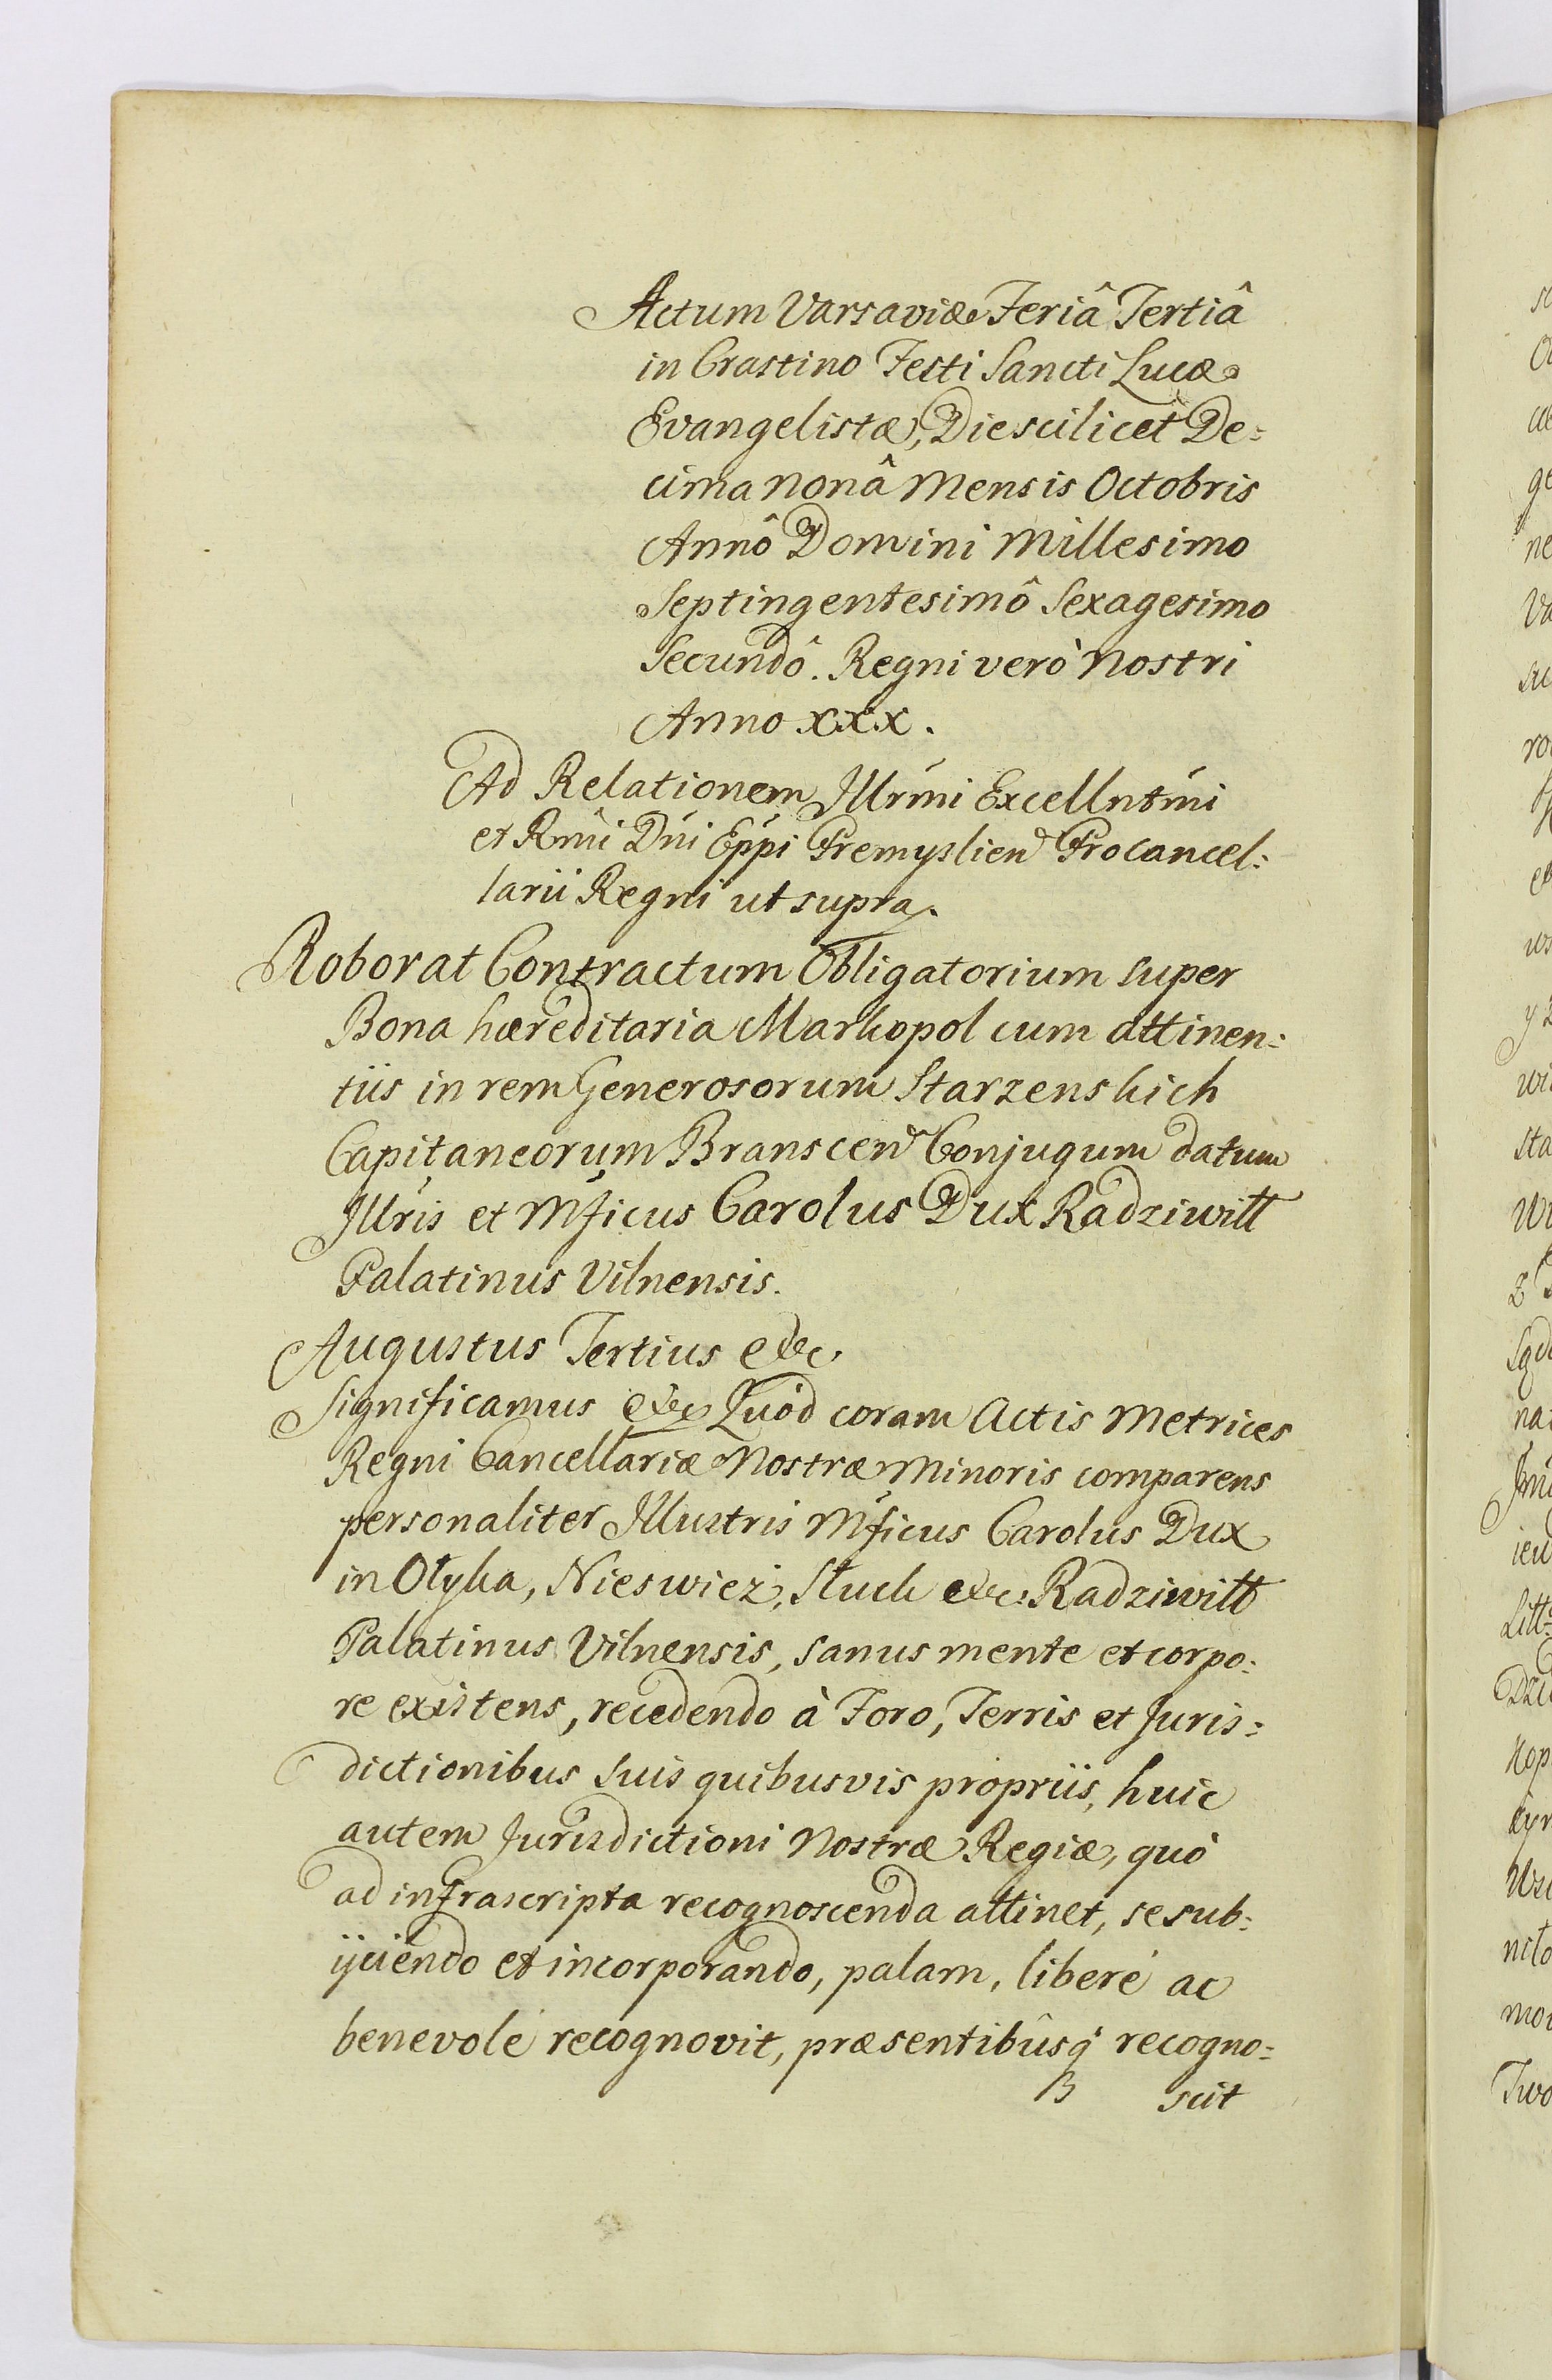 Actum Varsaviæ Feriâ Tertiâ
in Crastino Festi Sancti Lucæ
Evangelistæ, Die scilicet De=
cima nonâ Mensis Octobris
Annô Domini Millesimo
Septingentesimô Sexagesimo
Secundô. Regni verò Nostri
Anno XXX.
Ad Relationem Illrmi Excellntmi
et Rmi Dni Eppi Premyslien Procancel:
larii Regni ut supra.
Roborat Contractum Obligatorium super
Bona hæreditaria Markopol cum attinen:
tiis in rem Generosorum Starzenskich
Capitaneorum Branscen Conjugum datum
Illris et Mficus Carolus Dux Radziwiłł
Palatinus Vilnensis.
Augustus Tertius &c.
Significamus &c Quod coram Actis Metrices
Regni Cancellariæ Nostræ Minoris comparens
personaliter Illustris Mficus Carolus Dux
in Ołyka, Nieswiez, Słuck &c: Radziwiłł
Palatinus Vilnensis, sanus mente et corpo:
re existens, recedendo à Foro, Terris et Juris=
dictionibus suis quibusvis propriis, huic
autem Jurisdictioni Nostræ Regiæ, quò
ad infrascripta recognoscenda attinet, se sub:
ijciendo et incorporando, palam, liberé ac
benevolé recognovit, præsentibûsq́ recogno=
B scit